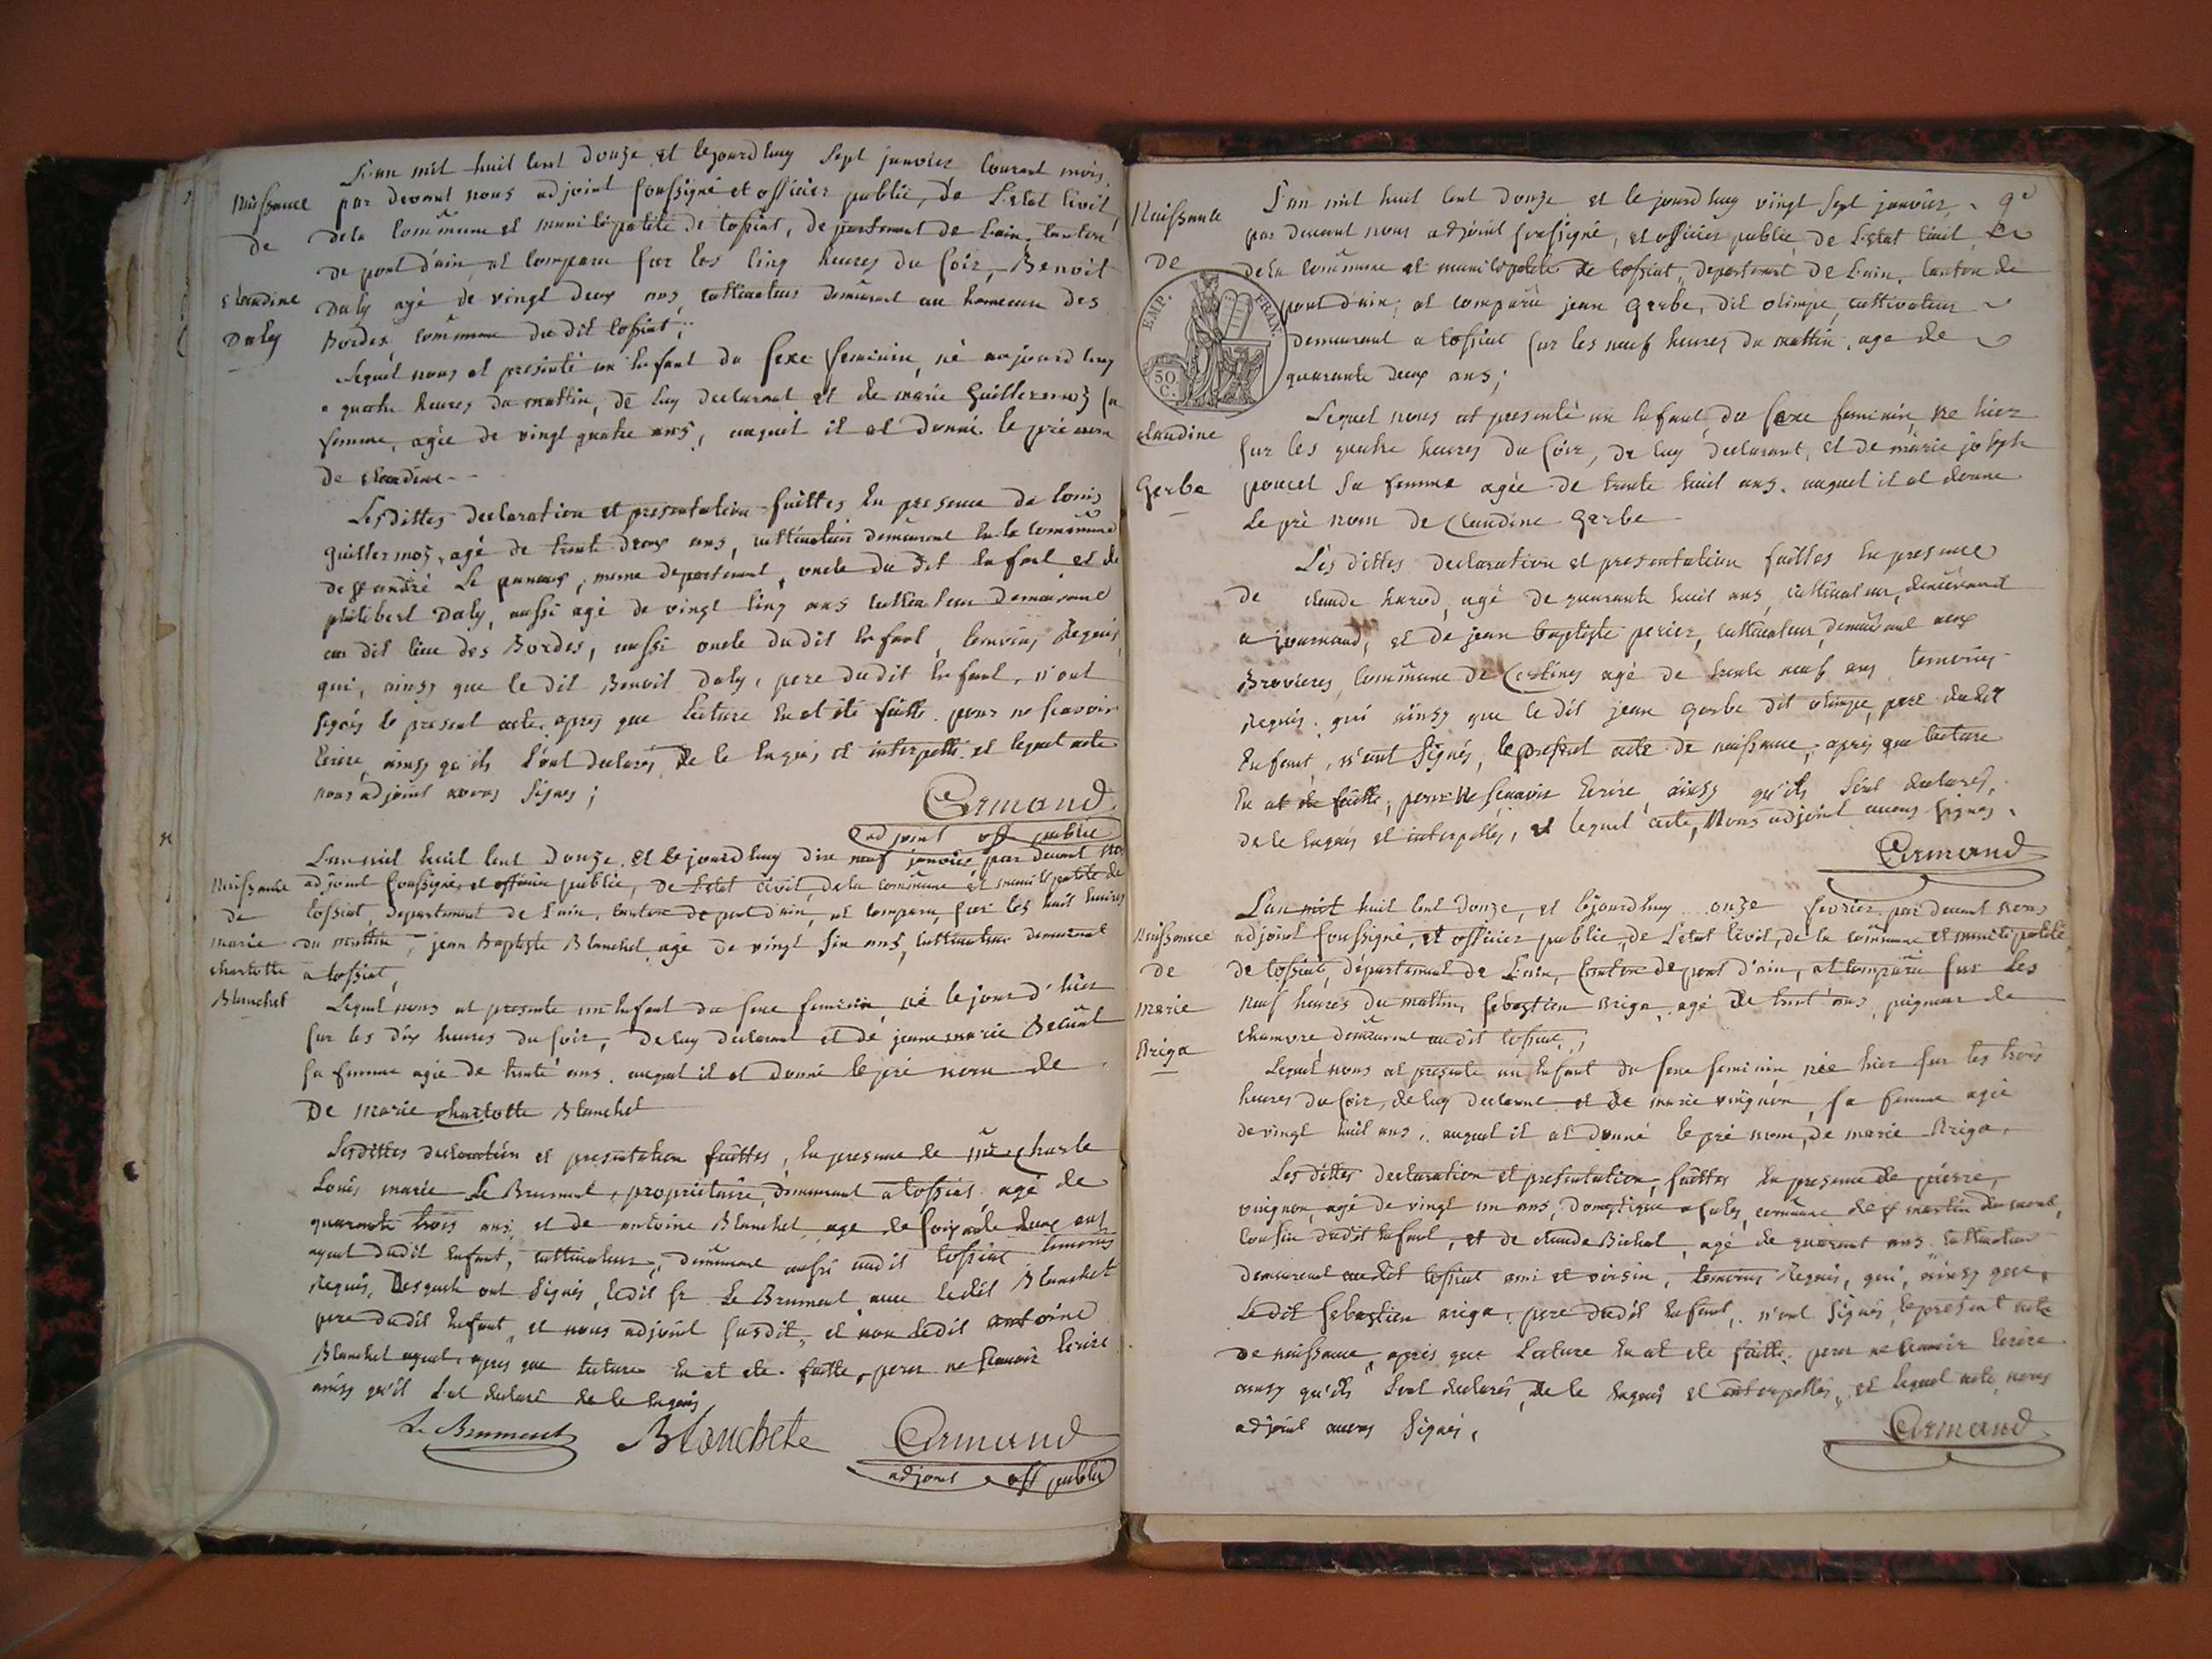 L'an mil huit cent douze et lejourdhuy sept janvier courant mois,
par devant nous adjoint soussigné et officier public, de L'etat civil,
dela commune et municipalité de tossiat, departement de L'ain, canton
de pont d'ain, at comparu sur les cinq heures du soir, Benoit
Daly agé de vingt deux ans, cultivateur demeurant au hameau des
Bordes commune du dit tossiat;
Naissance
de
Claudine
Daly
Lequel nous at presenté un enfant du sexe feminin, né aujourdhuy
a quatre heures du mattin, de luy declarant et de marie Guillermoz sa
femme, agée de vingt quatre ans, auquel il at donné le pré nom
de Claudine
Les dittes declaration et presentation faittes en presence de louis
guillermoz, agé de trente deux ans, cultivateur demeurant en la commune
de st andré Le panoux, meme departement, oncle du dit enfant, et de
philibert Daly, aussi agé de vingt cinq ans cultivateur demeurant
au dit lieu des Bordes, aussi oncle dudit enfant, temoins requis,
qui, ainsy que le dit Benoit Daly, pere dudit enfant, n'ont
signés le present acte, apres que lecture en at eté faitte, pour ne scavoir
ecrire, ainsy qu'ils l'ont declarés, de le enquis et interpellé, et lequel acte
nous adjoint avons signés;
Armand
adjoint off public
L'an mil huit cent douze, et lejourdhuy dix neuf janvier par devant nous
adjoint soussigné, et officier public, de L'etat civil, dela commune et municipalité de
tossiat, departement de L'ain, canton de pont d'ain, at comparu, sur les huit heures
du mattin, jean Baptiste Blanchet agé de vingt six ans, cultivateur demeurant
a tossiat,
Naissance
de
marie
charlotte
Blanchet
Lequel nous at presenté un enfant du sexe feminin, né le jour d'hier
sur les dix heures du soir, de luy declarant et de jeanne marie
sa femme agée de trente ans, auquel il at donné le pré nom de
De marie charlotte Blanchet
Les dittes declaration et presentation faittes, en presence de mr charle
Louis marie Le Brument, propriétaire, demeurant a tossiat, agé de
quarante trois ans, et de antoine Blanchet, agé de soixante deux ans
ayeul dudit enfant, cultivateur, demeurant aussi audit tossiat temoins
requis, Lesquels ont signés, ledit sr Le Brument, avec ledit Blanchet
pere dudit enfant, et nous adjoint susdit, et non ledit antoine
Blanchet ayeul, apres que lecture en at eté faitte, pour ne scavoir ecrire
ainsy qu'il l'at declaré de le enquis
Le Brument Blanchet Armand
adjoint off public
L'an mil huit cent douze et le jourdhuy vingt sept janvier,
par devant nous adjoint soussigné, et officier public de L'etat civil
dela commune et municipalité de tossiat, departement de L'ain, canton de
pont d'ain, at comparu jean Gerbe, dit olimpe, cultivateur
demeurant a tossiat sur les neuf heures du mattin, agé de
quarante deux ans;
Naissance
de
Claudine
Gerbe
EMP. FRAN.
50 C.
Lequel nous at presenté un enfant du sexe feminin, né hier
sur les quatre heures du soir, de luy declarant, et de marie joseph
poncet sa femme agée de trente huit ans, auquel il at donné
Le pré nom de Claudine Gerbe
Les dittes declaration et presentation faittes en presence
de claude, agé de quarante huit ans, cultivateur, demeurant
a journand, et de jean baptiste perier, cultivateur, demeurant aux
Brovieres commune de Certines agé de trente neuf ans, temoins
requis, qui ainsy que le dit jean Gerbe dit olimpe, pere dudit
enfant, n'ont signés, le present acte de naissance, après que lecture
en at été faitte, pour ne scavoir ecrire, ainsy qu'ils l'ont declarés,
de le enquis et interpellés, et lequel acte, Nous adjoint avons signés,
Armand
L'an mil huit cent douze, et lejourdhuy onze fevrier, par devant nous
adjoint soussigné, et officier public, de L'etat civil, de la commune et municipalité
de tossiat, département de L'ain, Canton de pont d'ain, at comparu sur les
neuf heures du mattin, sebastien Briga, agé de trent'ans, peigneur de
chanvre demeurant audit tossiat,
Naissance
de
marie
Briga
Lequel nous at presenté un enfant du sexe feminin, née hier sur les trois
heures du soir, de luy declarant et de marie vuignon, sa femme agée
de vingt huit ans, auquel il at donné le pré nom, de marie Briga,
Les dittes declaration et presentation, faittes en presence de pierre,
vuignon, agé de vingt un ans, domestique, commune de st martin du mont,
cousin dudit enfant, et de claude Bichat, agé de quarant ans cultivateur
demeurant audit tossiat ami et voisin, temoins requis, qui, ainsy que,
Ledit sebastien Briga, pere dudit enfant, n'ont signés, le present acte
de naissance, après que Lecture en at eté faitte, pour ne scavoir ecrire
ainsy qu'ils l'ont declarés, de le enquis et interpellés, et lequel acte, nous
adjoint avons signés,
Armand